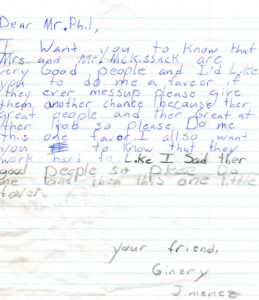 Dear Mr. Phil,
I Want you to Know that
Mrs. and Mr. McKissack are
very Good people and I'd Like
you to do me a favor if
they ever messup please give
them another chance because ther
great people and ther Great at
ther job so please Do me
this one favor. I allso want
you to know that they
work hard to. Like I Said ther
good people so please Do
me and them this one little
favor.
your friend,
Ginery
Jimenez